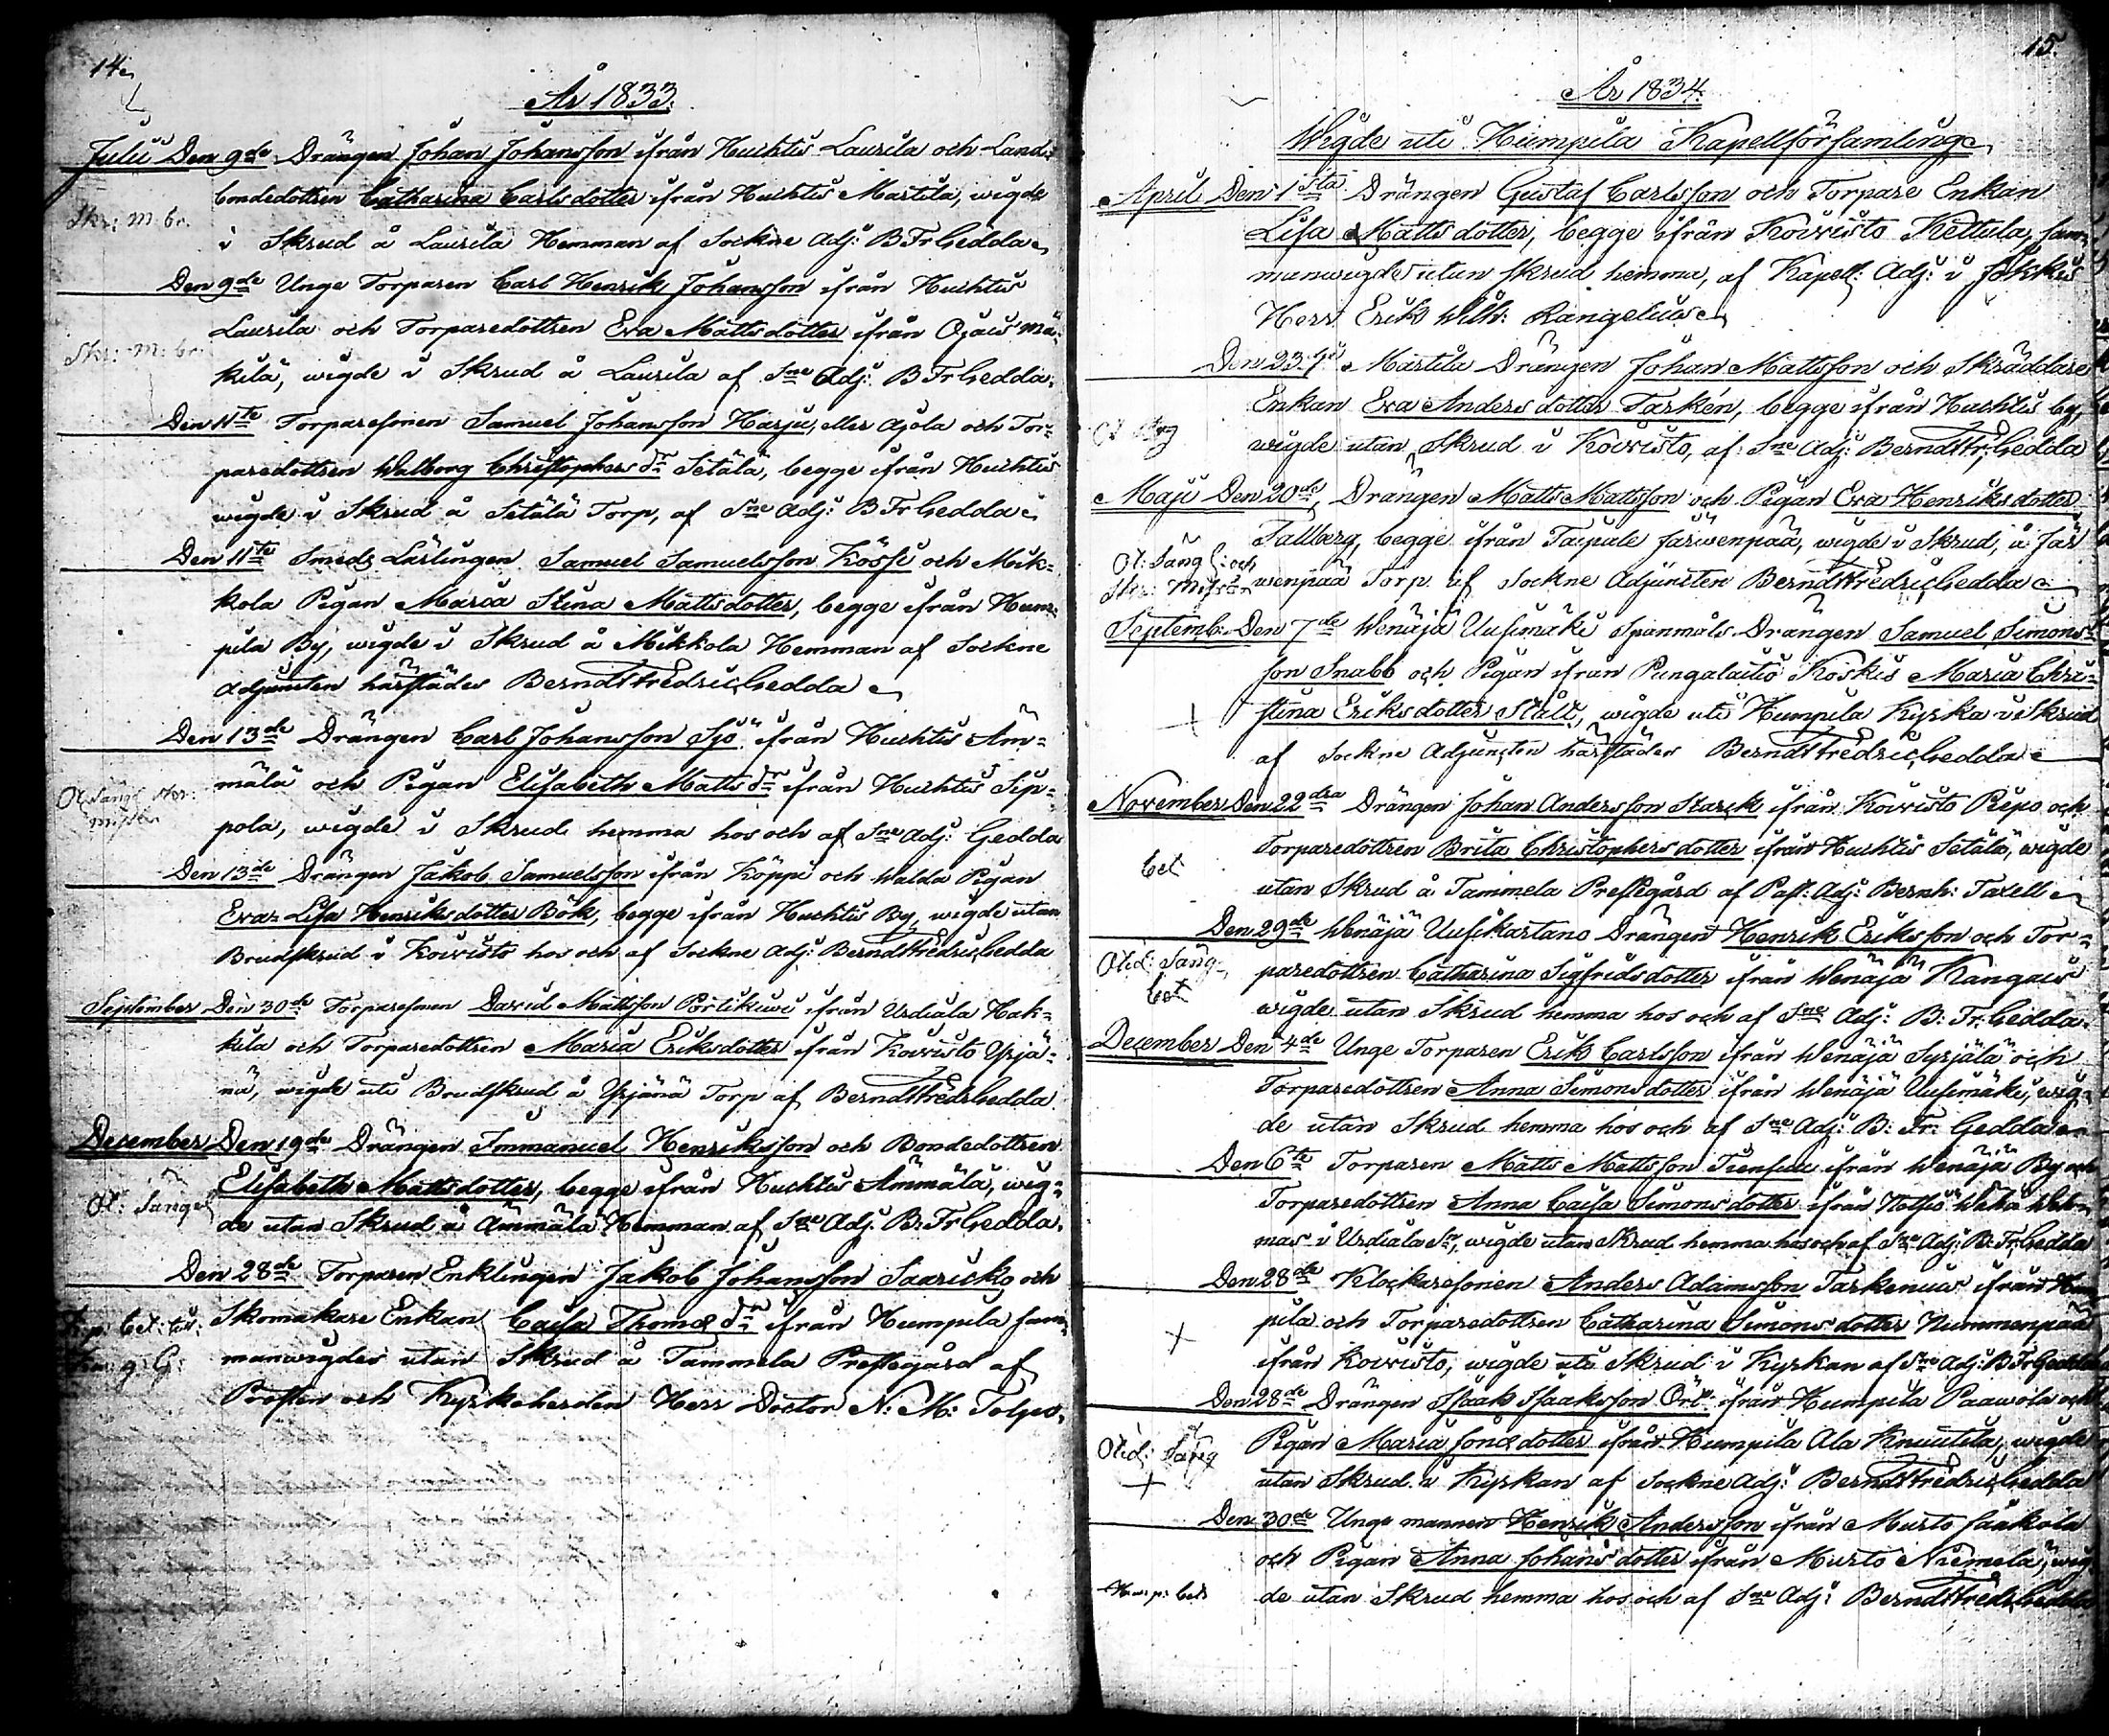 14.
År 1833.
Julii Den 9de Drängen Johan Johansson ifrån Huhtis Laurila och Land-
bondedottren Catharina Carlsdotter ifrån Huhtis Martila, wigde
Skr: m. br.
i Skrud å Laurila Hemman af Sockne Adj: B Fr Gedda
Den 9de Unge Torparen Carl Henrik Johansson ifrån Huhtis
Laurila och Torparedottren Eva Mattsdotter ifrån Ojais Mä-
Skr: m: br:
kilä, wigde i Skrud å Laurila af Sne Adj: B Fr Gedda.
Den 11te Torparesonen Samuel Johansson Harju, eller Ajola och Tor-
paredottren Walborg Christophersdr Setälä, begge ifrån Huhtis
wigde i Skrud å Setälä Torp, af Sne Adj: B Fr Gedda
Den 11te Smeds Lärlingen Samuel Samuelsson Kössi och Mik-
kola Pigan Maria Stina Mattsdotter, begge ifrån Hum-
pila By, wigde i Skrud å Mikkola Hemman af Sockne
Adjuncten härstädes Berndt Fredric Gedda
Den 13de Drängen Carl Johansson Sjö ifrån Huhtis Äm-
mälä och Pigan Elisabeth Mattsdr ifrån Huhtis Sip-
pola, wigde i Skrud hemma hos och af Sne Adj: Gedda
Den 13de Drängen Jakob Samuelsson ifrån Köppi och Walda Pigan
Eva Lisa Henriksdotter Bök, begge ifrån Huhtis By, wigde utan
Brudskrud i Koivisto hos och af Sockne Adj: Berndt Fredric Gedda
September Den 30de Torparesonen David Mattsson Pörlikivi ifrån Urdiala Hak-
kila och Torparedottren Maria Eriksdotter ifrån Koivisto Yrjä-
nä, wigde uti Brudskrud å Yrjänä Torp af Berndt Fredr Gedda
December Den 19de Drängen Immanuel Henriksson och Bondedottren
Elisabeth Mattsdotter, begge ifrån Huhtis Ämmälä, wig-
Ot: Säng
de utan Skrud å Ämmälä Hemman af Sne Adj: B: Fr Gedda.
Den 28de Torparen Enklingen Jakob Johansson Saaricko och
Skomakare Enkan Caisa Thomædr ifrån Humpila sam-
manwigdes utan Skrud å Tammela Prestegård af
Prosten och Kyrkoherden Herr Doctor N: M: Tolpo.
15.
År 1834.
Wigde uti Humpila Kapellförsamling
April Den 1sta Drängen Gustaf Carlsson och Torpare Enkan
Lisa Mattsdotter, begge ifrån Koivisto Kettula, sam-
manwigde utan skrud hemma, af Kapell: Adj: i Jokkis
Herr Erik Wilh: Rangelius
Den 23. Martila Drängen Johan Mattsson och Skräddare
Enkan Eva Andersdotter Tarkén, begge ifrån Huhtis by,
wigde utan Skrud i Koivisto, af Sne Adj: Berndt Fr: Gedda
Maji Den 20de Drängen Matts Mattsson och Pigan Eva Henriksdotter
Fallberg, begge ifrån Taipale Järwenpää, wigde i Skrud, å Jär
Ot: Säng: och
wenpää Torp af Sockne Adjuncten Berndt Fredric Gedda
Septemb: Den 7de Wenäjä Uusimäki Spanmåls Drängen Samuel Simons-
son Snabb och Pigan ifrån Pungalaitio Koskis Maria Chri-
+
stina Eriksdotter Ståll, wigde uti Humpila Kyrka i Skrud
af Sockne Adjuncten härstädes Berndt Fredric Gedda
November Den 22dra Drängen Johan Andersson Starck ifrån Koivisto Repo och
Torparedottren Brita Christophersdotter ifrån Huhtis Setälä, wigde
bet
utan Skrud å Tammela Prestegård af Past: Adj: Bernh: Taxell
Den 29de Wenäjä Uusikartano Drängen Henrik Eriksson och Tor-
Otid: Säng
paredottren Catharina Sigfridsdotter ifrån Wenäjä Kangais
bet
wigde utan Skrud hemma hos och af Sne Adj: B: Fr: Gedda.
December Den 4de Unge Torparen Erik Carlsson ifrån Wenäjä Syrjälä och
Torparedottren Anna Simonsdotter ifrån Wenäjä Uusimäki, wig-
de utan Skrud hemma hos och af Sne Adj: B: Fr: Gedda
Den 6te Torparen Matts Mattsson Tiensuu ifrån Wenäjä By och
Torparedottren Anna Caisa Simonsdotter ifrån
i Urdiala Sn, wigde utan Skrud hemma hos och af Sne Adj: B: Fr: Gedda
Den 28de Klockaresonen Anders Adamsson Tarkenius ifrån Hum
pila och Torparedottren Catharina Simonsdotter Nummenpää
+
ifrån Koivisto, wigde uti Skrud i Kyrkan af Sne Adj: B Fr Gedda
Den 28de Drängen Isaak Isaaksson Ört ifrån Humpila Paawola och
Otid: Säng
Pigan Maria Jonædotter ifrån Humpila Ala Knuutila, wigde
+
utan Skrud i Kyrkan af Sockne Adj: Berndt Fredric Gedda
Den 30de Unge mannen Henrik Andersson ifrån Murto Jaakola
och Pigan Anna Johansdotter ifrån Murto Niemelä, wig
de utan Skrud hemma hos och af Sne Adj: Berndt Fredr Gedda